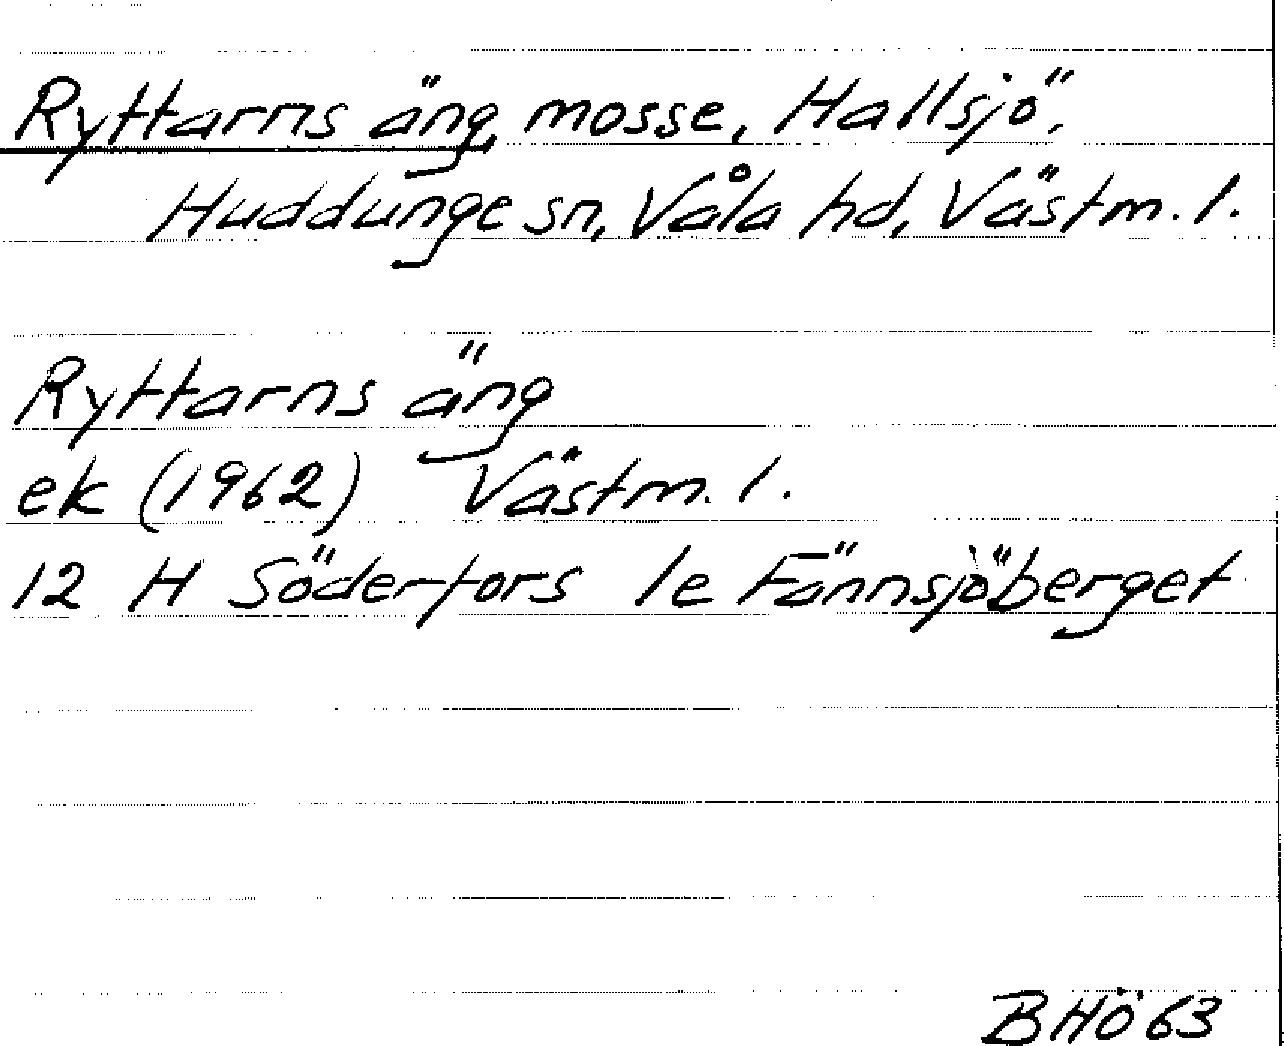 Ryttarns äng, mosse, Hallsjö,
Huddunge sn, Våla hd, Västm. l.
Ryttarns äng
ek (1962) Västm. l.
12 H Söderfors 1e Fännsjöberget
BHÖ 63